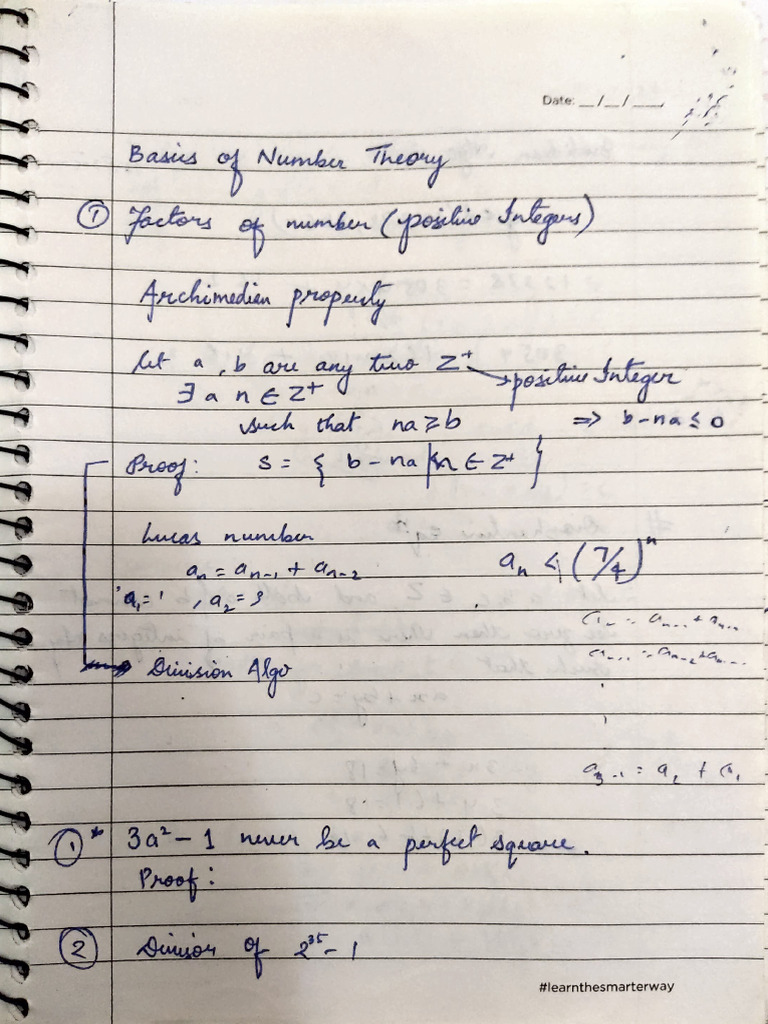 Date: __/__/___
Basics of Number Theory
① Factors of number (positive Integers)
Archimedian property
Let a, b are any two Z⁺ → positive Integer
∃ a n ∈ Z⁺
such that na ≥ b ⇒ b - na ≤ 0
Proof: S = { b - na | n ∈ Z⁺ }
Lucas number
aₙ = aₙ₋₁ + aₙ₋₂ aₙ < (7/4)ⁿ
a₁ = 1, a₂ = 3
Division Algo
a₃ = a₂ + a₁
①* 3a² - 1 never be a perfect square.
Proof:
② Divisor of 2³⁵ - 1
#learnthesmarterway